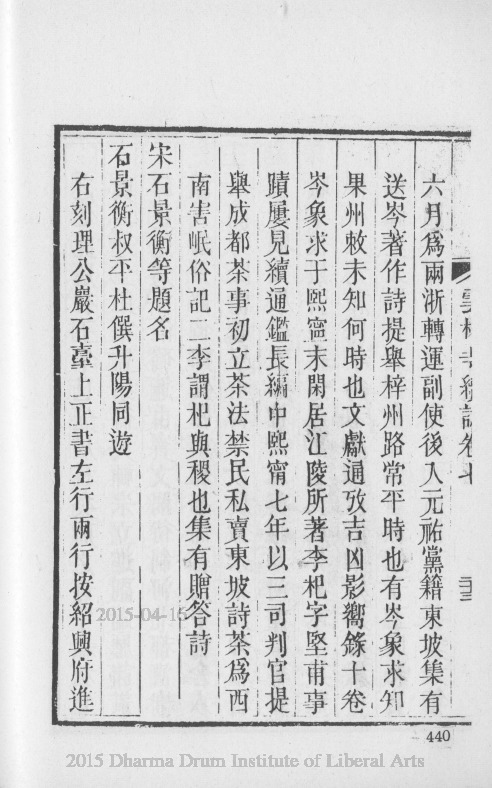 六月爲兩浙轉運副使後入元祐黨籍東坡集有
送岑著作詩提舉梓州路常平時也有岑象求知
果州敕未知何時也文獻通攷吉凶影嚮錄十卷
岑象求于熙寧末閑居江陵所著李杞字堅甫事
蹟屢見續通鑑長編中熙甯七年以三司判官提
舉成都茶事初立茶法禁民私賣東坡詩茶爲西
南害岷俗記二李謂杞與稷也集有贈答詩
宋石景衡等題名
石景衡叔平杜僎升陽同遊
右刻理公巖石臺上正書左行兩行按紹興府進
440
2015-04-15
2015 Dharma Drum Institute of Liberal Arts